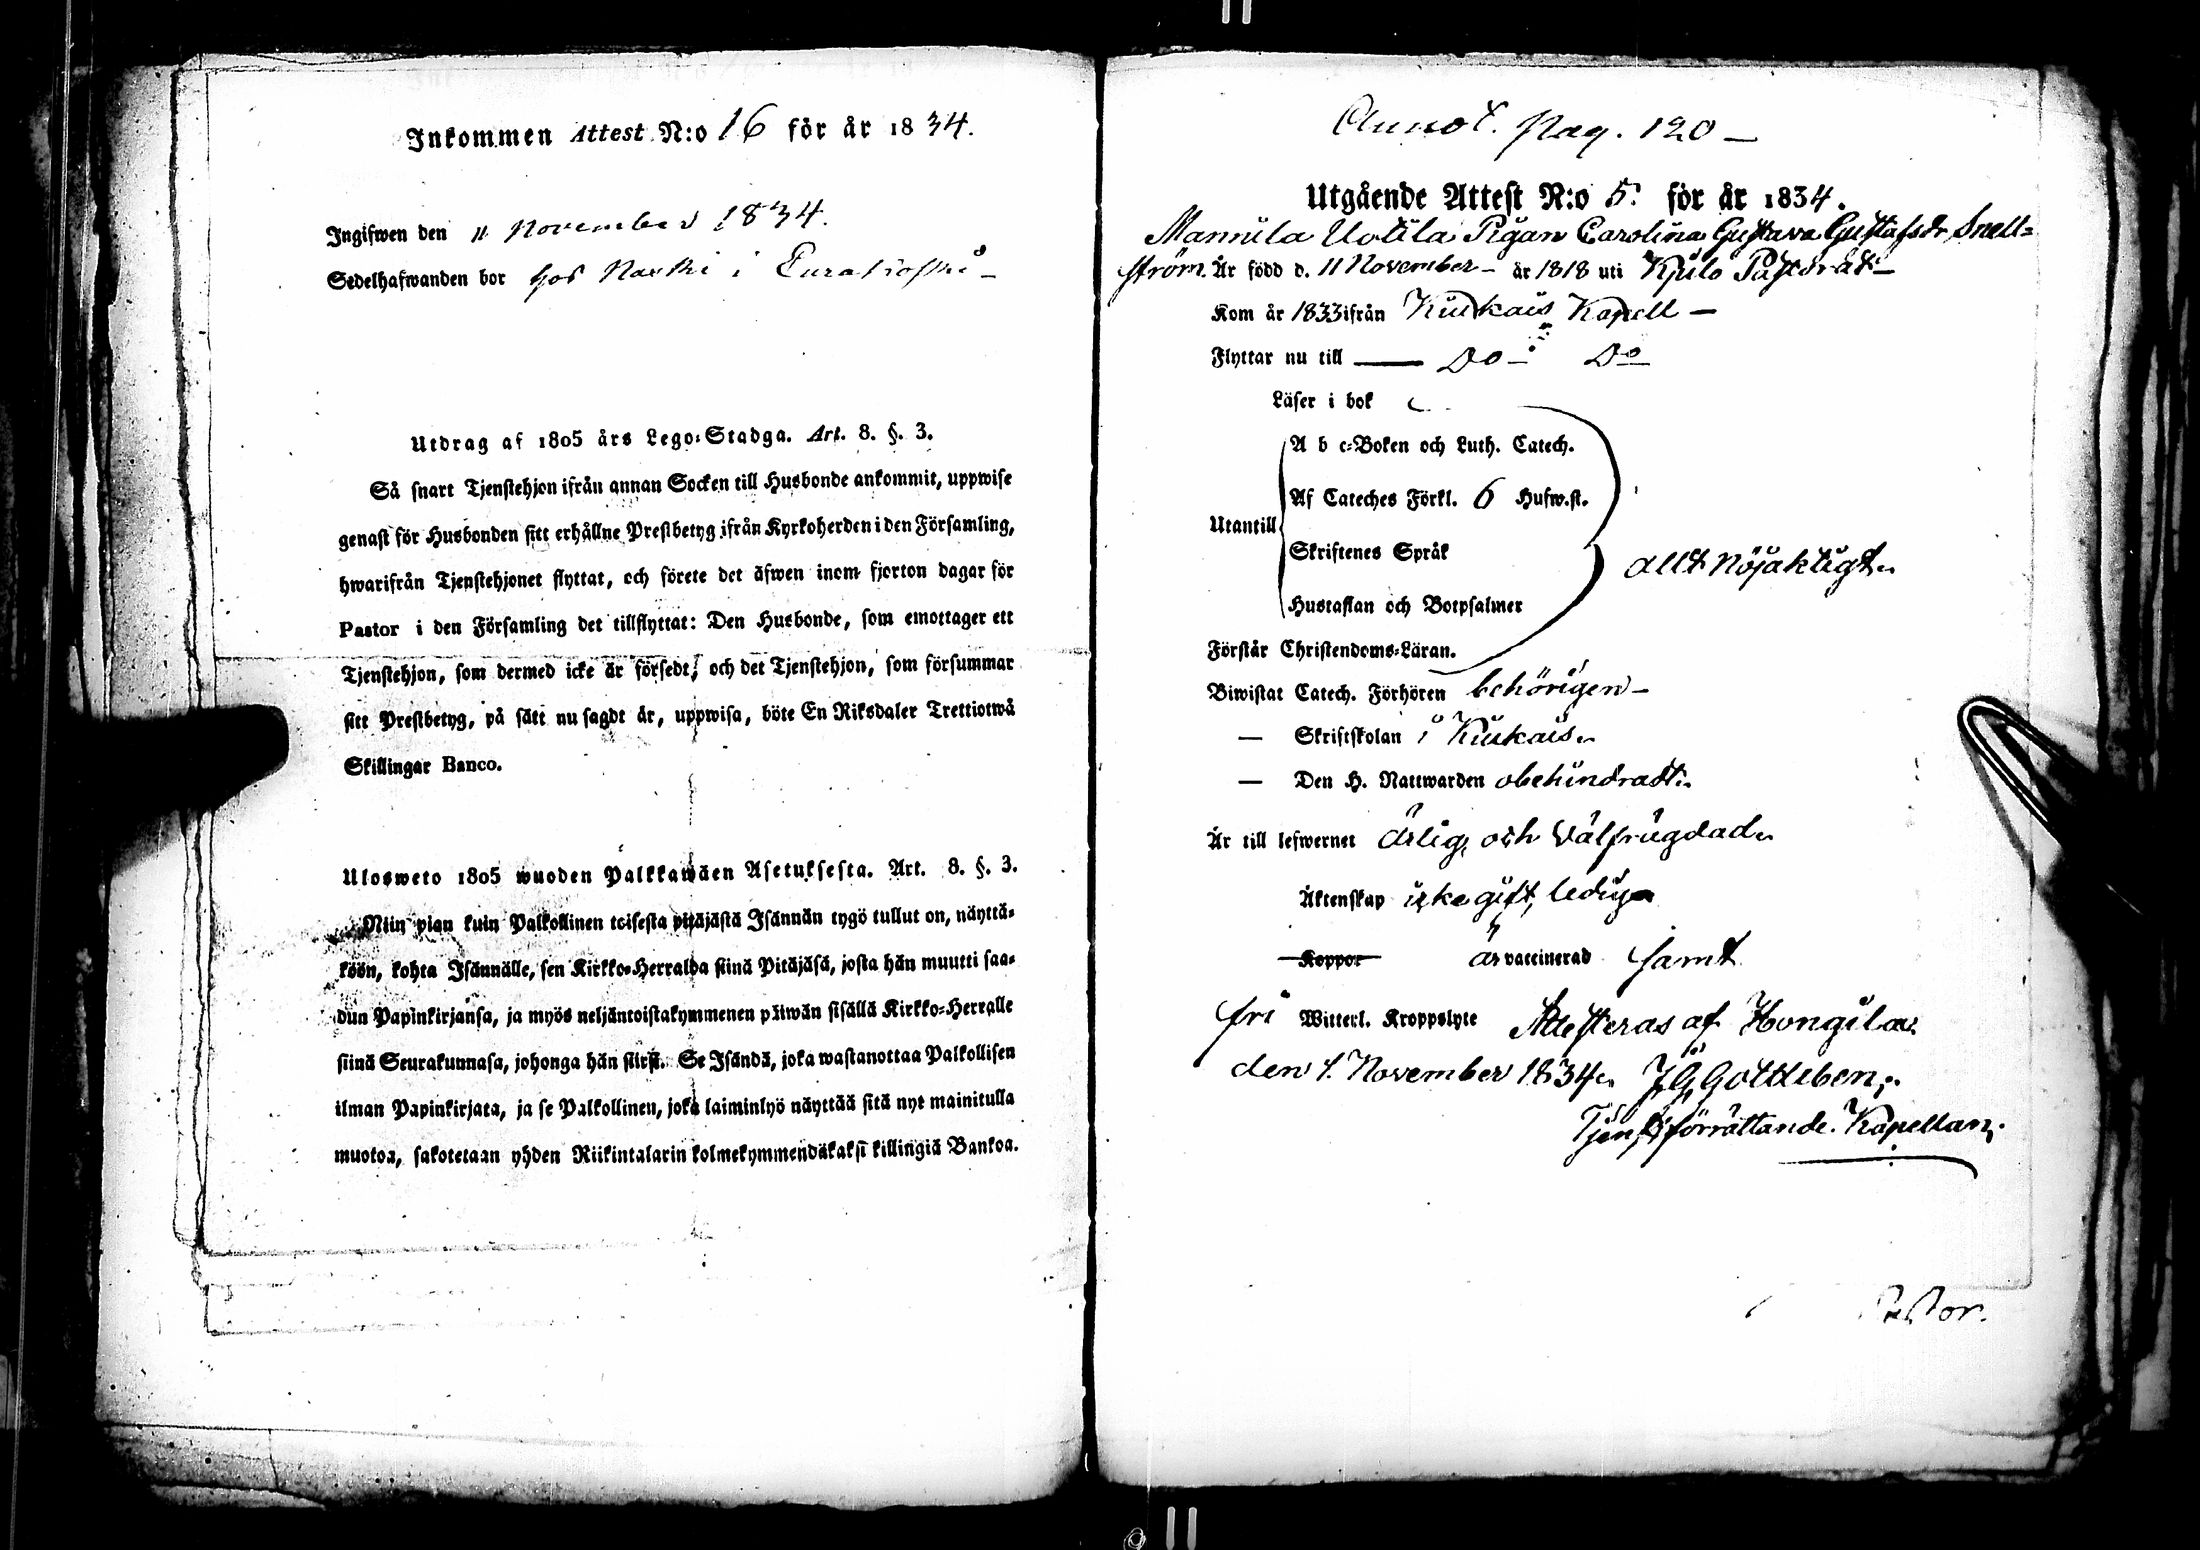 Inkommen Attest N:o 16 för år 1834.
Ingifwen den 11 November 1834.
Sedelhafwanden bor hos Naski i
Utdrag af 1805 års Lego-Stadga. Art. 8. §. 3.
Så snart Tjenstehjon ifrån annan Socken till Husbonde ankommit, uppwise
genast för Husbonden sitt erhållne Prestbetyg ifrån Kyrkoherden i den Församling,
hwarifrån Tjenstehjonet flyttat, och förete det äfwen inom fjorton dagar för
Pastor i den Församling det tillflyttat: Den Husbonde, som emottager ett
Tjenstehjon, som dermed icke är försedt, och det Tjenstehjon, som försummar
sitt Prestbetyg, på sätt nu sagdt är, uppwisa, böte En Riksdaler Trettiotwå
Skillingar Banco.
Ulosweto 1805 wuoden Palkkawäen Asetuksesta. Art. 8. §. 3.
Niin pian kuin Palkollinen toisesta pitäjästä Isännän tygö tullut on, näyttä-
köön, kohta Isännälle, sen Kirkko-Herralda siinä Pitäjäsä, josta hän muutti saa-
dun Papinkirjansa, ja myös neljäntoistakymmenen päiwän sisällä Kirkko-Herralle
siinä Seurakunnasa, johonga hän siirst. Se Isändä, joka wastanottaa Palkollisen
ilman Papinkirjata, ja se Palkollinen, joka laiminlyö näyttää sitä nyt mainitulla
muotoa, sakotetaan yhden Riikintalarin kolmekymmendäkaksi killingiä Bankoa.
Annot. Pag. 120 —
Utgående Attest N:o 5. för år 1834.
Mannila Uotila Pigan Carolina Gustava Gustafsdr Snell-
ström. Är född d. 11 November - år 1818 uti Kjulo Pastorat -
Kom år 1833 ifrån Kiukais Kapell —
Flyttar nu till — Do — Do
Läser i bok
A b c-Boken och Luth. Catech.
Af Cateches Förkl. 6 Hufw.st.
Utantill
Skriftenes Språk
allt nöjaktigt.
Hustaflan och Botpsalmer
Förstår Christendoms-Läran.
Biwistat Catech. Förhören behörigen —
— Skriftskolan i Kiukais.
— Den H. Nattwarden obehindradt.
Är till lefwernet ärlig och välfrägdad.
Äktenskap icke gift, ledig
Koppor är vaccinerad samt
fri Witterl. Kroppslyte Attesteras af Hongila
den 1. November 1834. J. G. Gottleben,
Tjenstförrättande Kapellan.